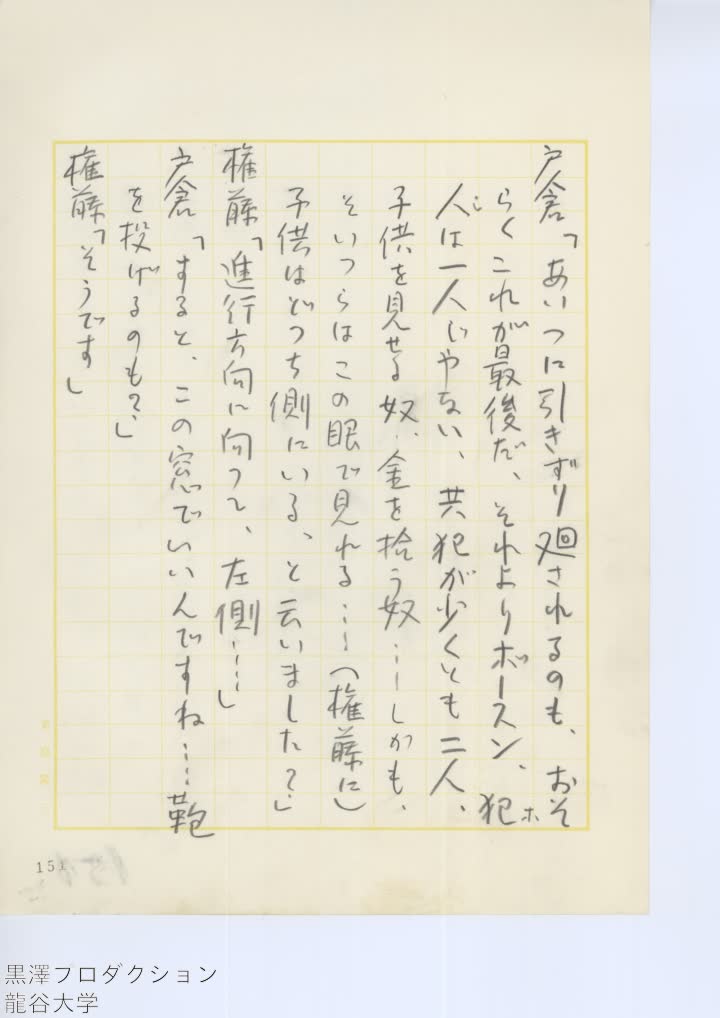 戸倉「あいつに引きずり廻されるのも、おそ
らくこれが最後だ、それよりボースン、犯
人は一人じやない、共犯が少くとも二人、
子供を見せる奴、金を拾う奴……しかも、
そいつらはこの眼で見れる……（権藤に）
子供はどつち側にいる、と云いました？」
権藤「進行方向に向つて、左側……」
戸倉「すると、この窓でいいんですね……鞄
を投げるのも？」
権藤「そうです」
ホ
151
黒澤プロダクション
龍谷大学